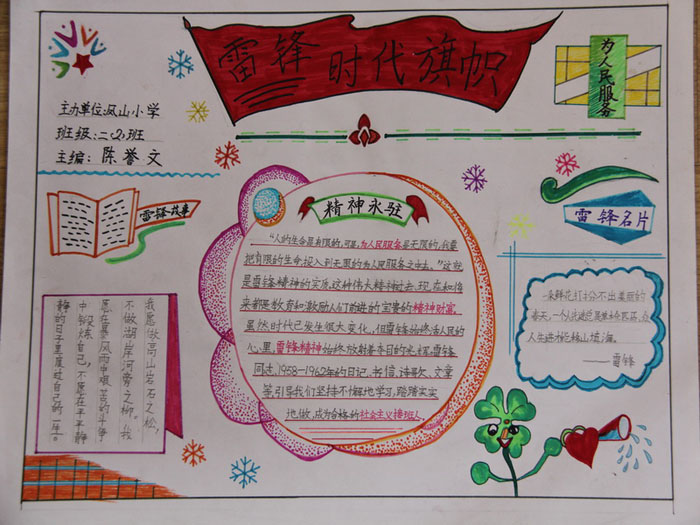 雷锋时代旗帜
为人民服务
主办单位:凤山小学
班级:二(2)班
主编:陈誉文
雷锋故事
精神永驻
雷锋名片
“人的生命是有限的,可是,为人民服务是无限的,我要
把有限的生命投入到无限的为人民服务之中去。”这就
是雷锋精神的实质,这种伟大精神过去、现在和将
来都是教育和激励人们前进的宝贵的精神财富。
虽然时代已发生很大变化,但雷锋始终活在人民的
心里,雷锋精神始终放射着夺目的光辉,雷锋
同志1958—1962年的日记、书信、诗歌、文章
等,引导我们坚持不懈地学习,踏踏实实
地做,成为合格的社会主义接班人。
一朵鲜花打扮不出美丽的
春天,一个人先进总是单枪匹马,众
人先进才能移山填海。
——雷锋
我愿做高山岩石之松,
不做湖岸河旁之柳。我
愿在暴风雨中艰苦的斗争
中锻炼自己,不愿在平平静
静的日子里度过自己的一生。